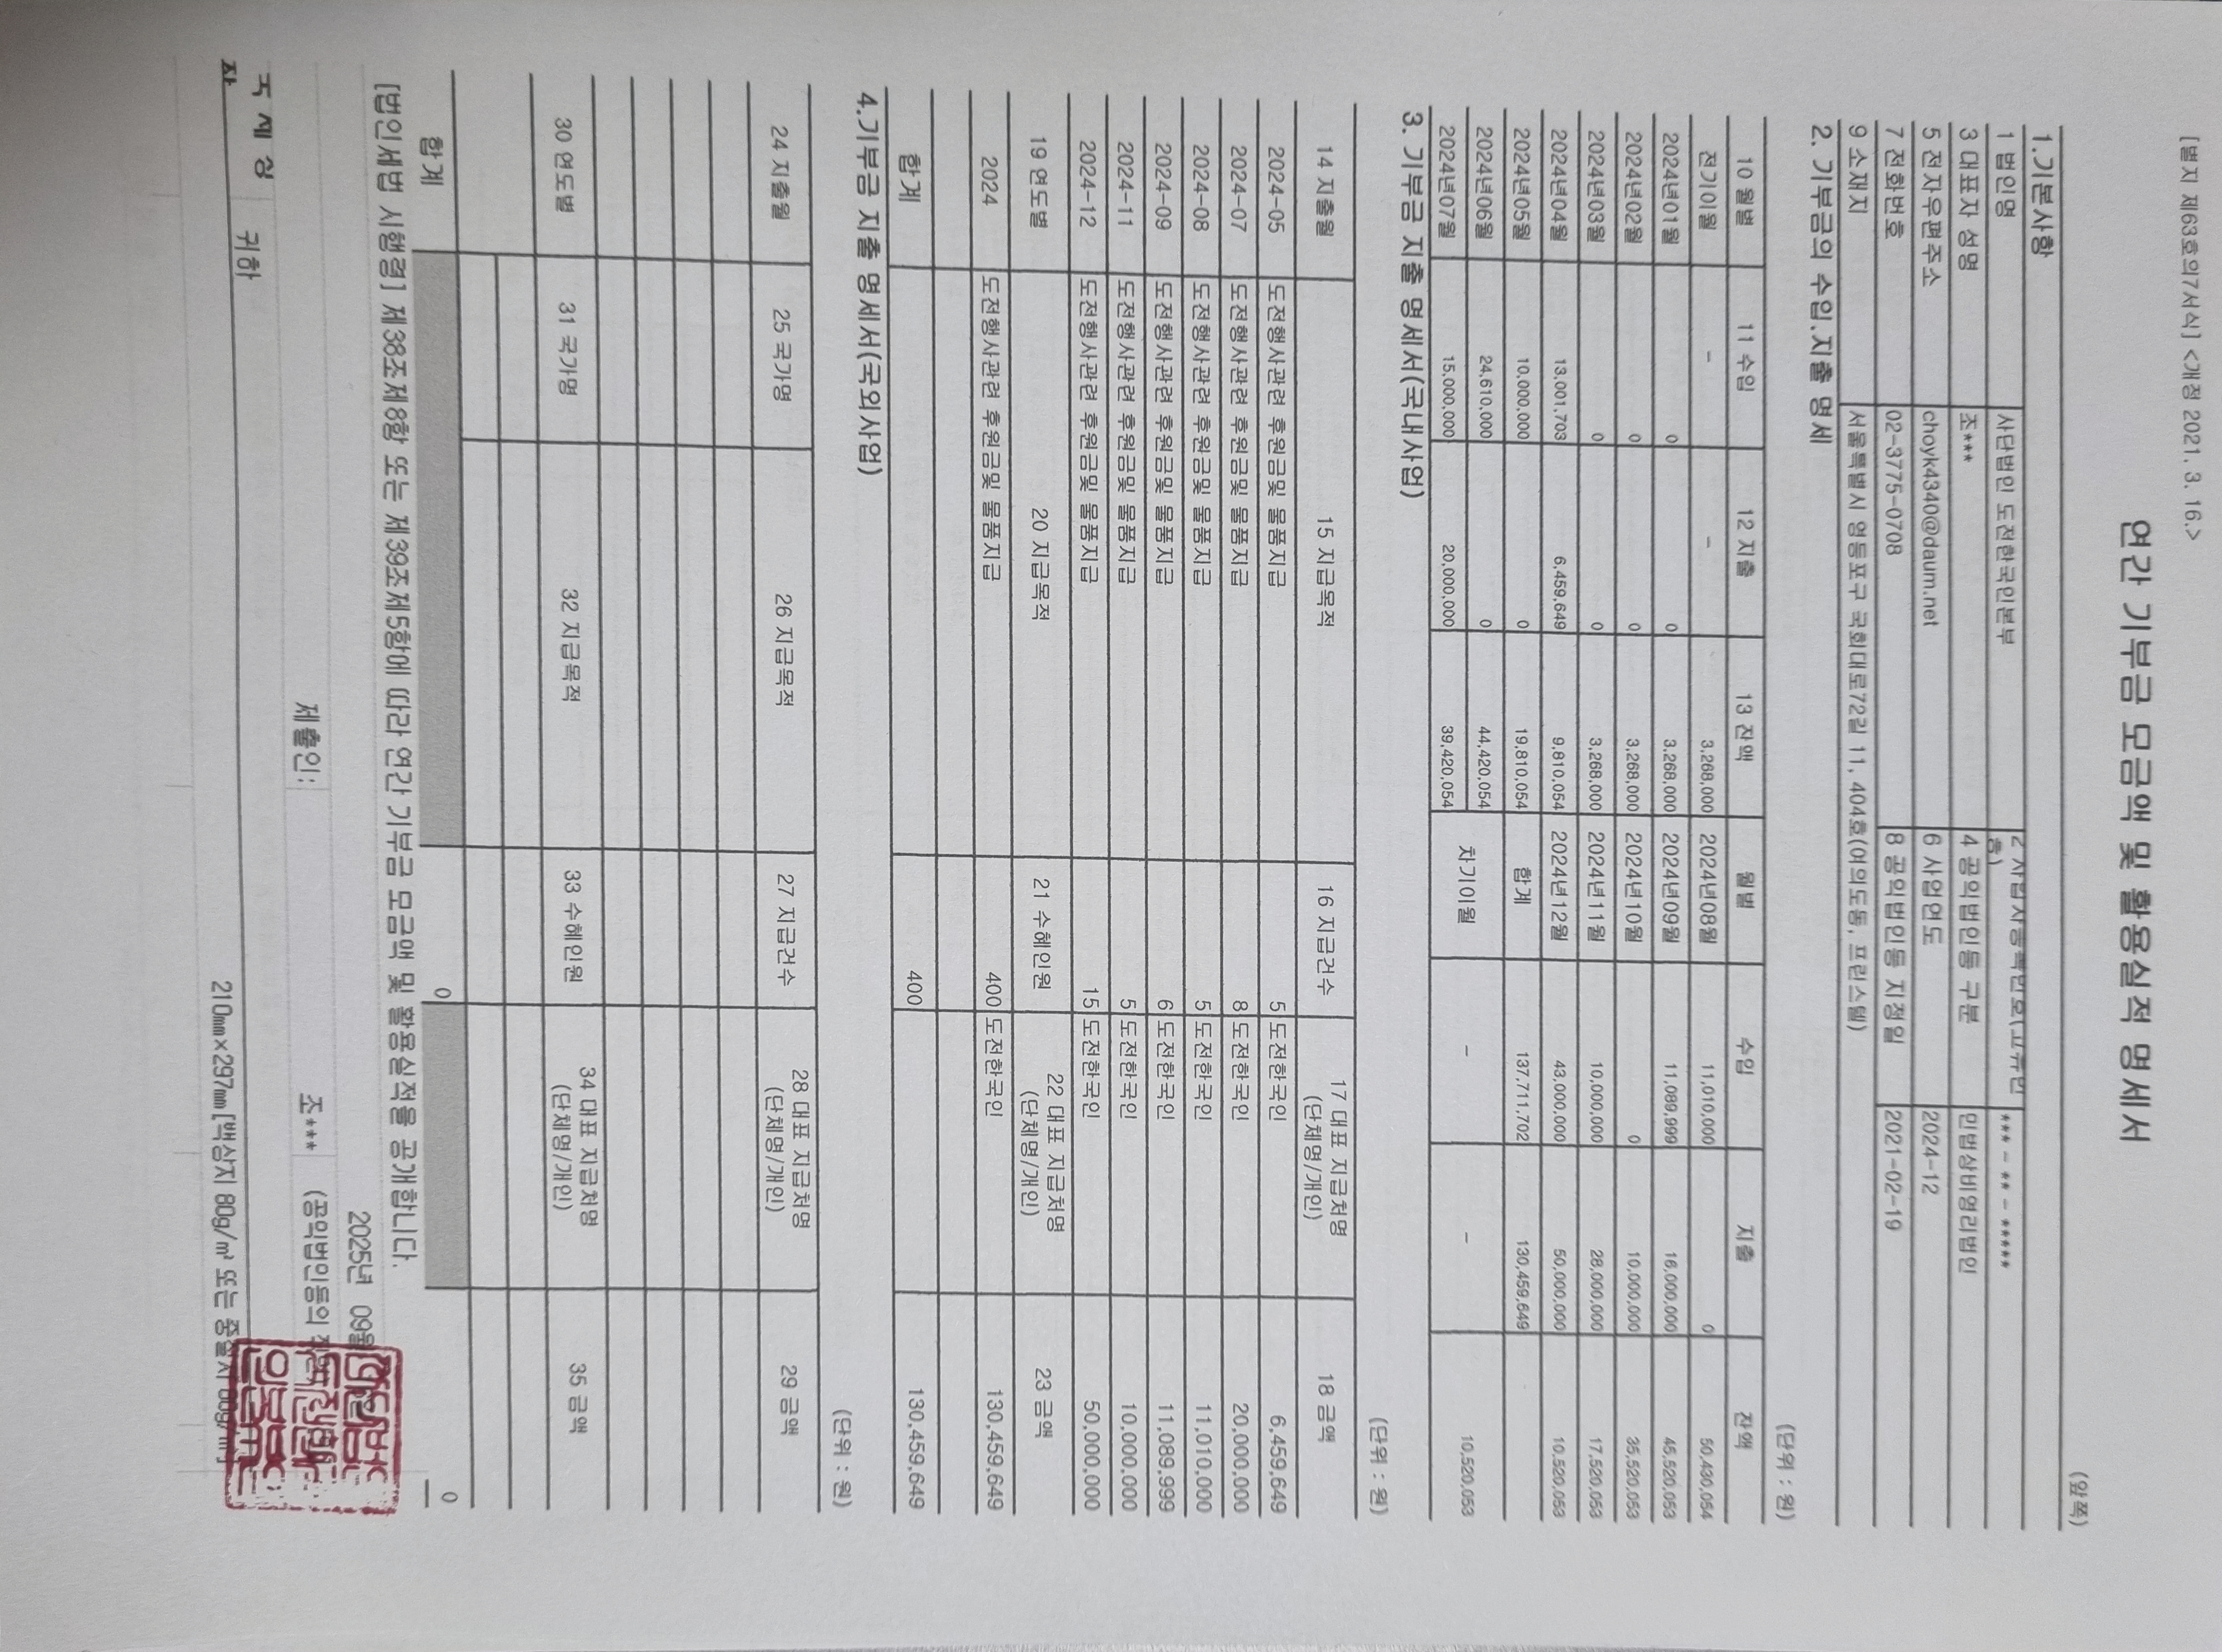 [별지 제63호의7서식] <개정 2021. 3. 16.>
(앞쪽)
연간 기부금 모금액 및 활용실적 명세서
1.기본사항
1 법인명 사단법인 도전한국인본부 2 사업자등록번호(고유번호) *** - ** - *****
3 대표자 성명 조*** 4 공익법인등 구분 민법상비영리법인
5 전자우편주소 choyk4340@daum.net 6 사업연도 2024-12
7 전화번호 02-3775-0708 8 공익법인등 지정일 2021-02-19
9 소재지 서울특별시 영등포구 국회대로72길 11, 404호(여의도동, 프린스텔)
2. 기부금의 수입.지출 명세
(단위 : 원)
10 월별 11 수입 12 지출 13 잔액 월별 수입 지출 잔액
전기이월 - - 3,268,000 2024년08월 11,010,000 0 50,430,054
2024년01월 0 0 3,268,000 2024년09월 11,089,999 16,000,000 45,520,053
2024년02월 0 0 3,268,000 2024년10월 0 10,000,000 35,520,053
2024년03월 0 0 3,268,000 2024년11월 10,000,000 28,000,000 17,520,053
2024년04월 13,001,703 6,459,649 9,810,054 2024년12월 43,000,000 50,000,000 10,520,053
2024년05월 10,000,000 0 19,810,054 합계 137,711,702 130,459,649
2024년06월 24,610,000 0 44,420,054 차기이월 - - 10,520,053
2024년07월 15,000,000 20,000,000 39,420,054
3. 기부금 지출 명세서(국내사업)
(단위 : 원)
14 지출월 15 지급목적 16 지급건수 17 대표 지급처명 (단체명/개인) 18 금액
2024-05 도전행사관련 후원금및 물품지급 5 도전한국인 6,459,649
2024-07 도전행사관련 후원금및 물품지급 8 도전한국인 20,000,000
2024-08 도전행사관련 후원금및 물품지급 5 도전한국인 11,010,000
2024-09 도전행사관련 후원금및 물품지급 6 도전한국인 11,089,999
2024-11 도전행사관련 후원금및 물품지급 5 도전한국인 10,000,000
2024-12 도전행사관련 후원금및 물품지급 15 도전한국인 50,000,000
19 연도별 20 지급목적 21 수혜인원 22 대표 지급처명 (단체명/개인) 23 금액
2024 도전행사관련 후원금및 물품지급 400 도전한국인 130,459,649
합계 400 130,459,649
4.기부금 지출 명세서(국외사업)
(단위 : 원)
24 지출월 25 국가명 26 지급목적 27 지급건수 28 대표 지급처명 (단체명/개인) 29 금액
30 연도별 31 국가명 32 지급목적 33 수혜인원 34 대표 지급처명 (단체명/개인) 35 금액
합계 0 0
[법인세법 시행령] 제38조제8항 또는 제39조제5항에 따라 연간 기부금 모금액 및 활용실적을 공개합니다.
2025년 09월
제출인: 조*** (공익법인등의
국 세 청 장 귀하
210mm×297mm[백상지 80g/㎡ 또는 중질지 80g/㎡]